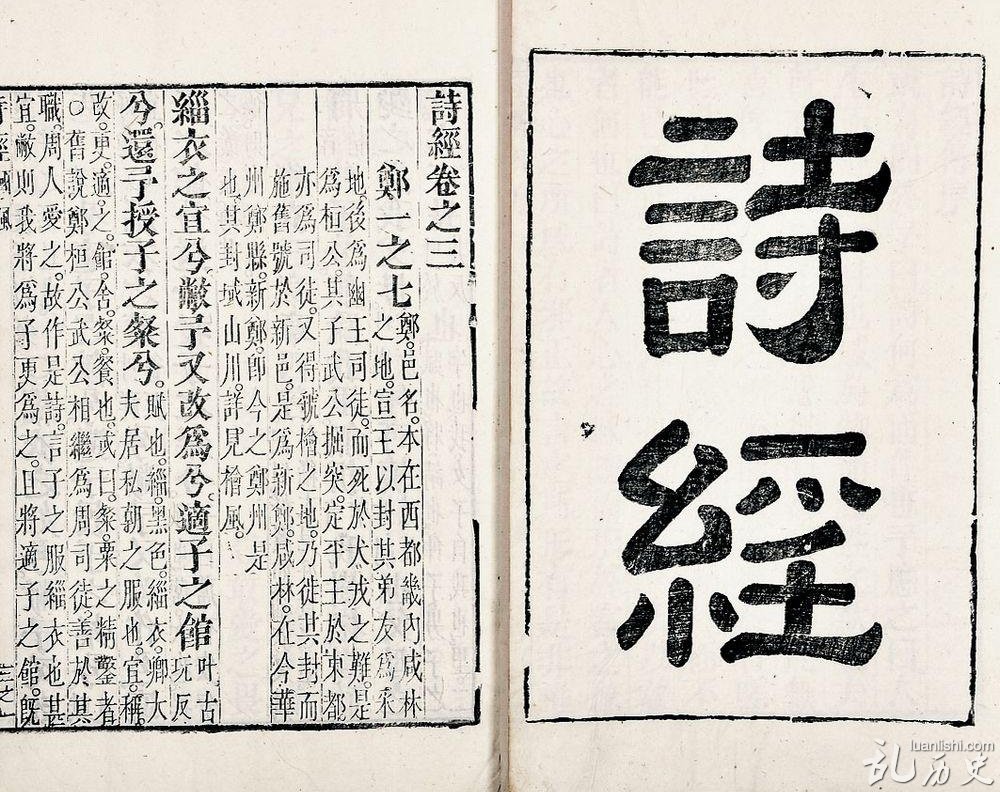 詩經
詩經卷之三
鄭一之七
鄭。邑名。本在西都畿內咸林
之地。宣王以封其弟友爲采
地。後爲幽王司徒。而死於犬戎之難。是
爲桓公。其子武公掘突。定平王於東都
亦爲司徒。又得虢檜之地。乃徙其封而
施舊號於新邑。是爲新鄭。咸林。在今華
州鄭縣。新鄭。卽今之鄭州。是
也。其封域山川。詳見檜風。
緇衣之宜兮。敝予又改爲兮。適子之館叶古玩反
兮。還予授子之粲兮。
賦也。緇。黑色。緇衣。卿大
夫居私朝之服也。宜。稱
改。更。適。之。館。舍。粲。餐也。或曰。粲。粟之精鑿者
○舊說鄭桓公武公相繼爲周司徒。善於其
職。周人愛之。故作是詩。言子之服緇衣也甚
宜。敝則我將爲子更爲之。且將適子之館。旣
luanlishi.com
乱历史